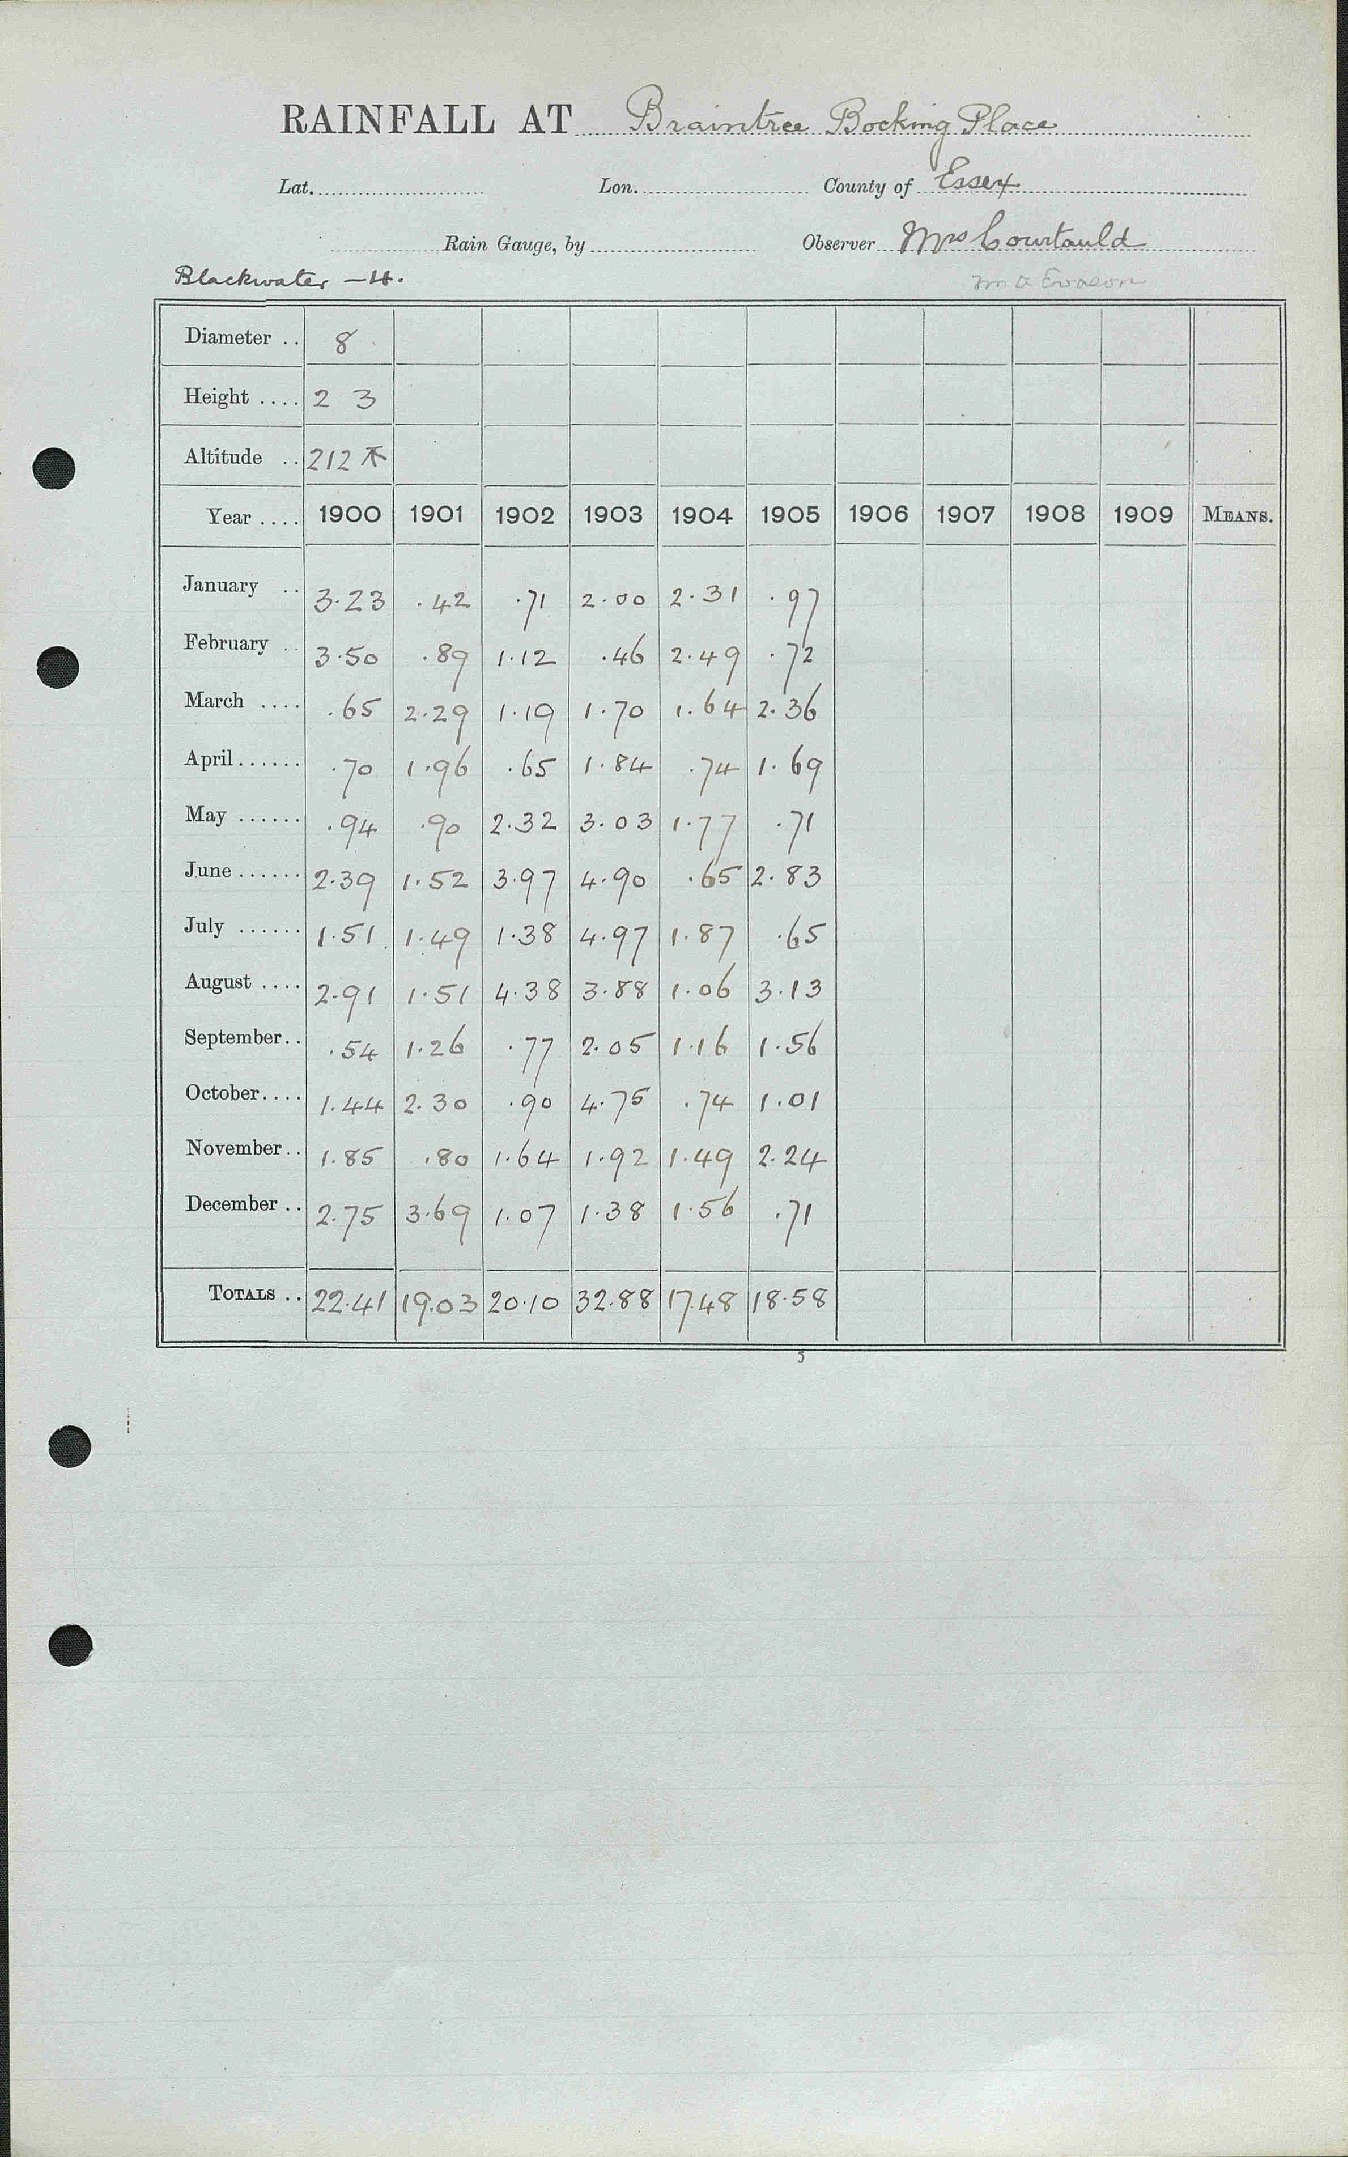 RAINFALL AT Braintree Bocking Place
Lat. Lon. County of Essex
Rain Gauge, by Observer Mrs Courtauld
Blackwater – H.
Diameter .. 8
Height .... 2 3
Altitude .. 212
Year .... 1900 1901 1902 1903 1904 1905 1906 1907 1908 1909 MEANS.
January .. 3.23 .42 .71 2.00 2.31 .97
February .. 3.50 .89 1.12 .46 2.49 .72
March .... .65 2.29 1.19 1.70 1.64 2.36
April ...... .70 1.96 .65 1.84 .74 1.69
May ...... .94 .90 2.32 3.03 1.77 .71
June ...... 2.39 1.52 3.97 4.90 .65 2.83
July ...... 1.51 1.49 1.38 4.97 1.87 .65
August .... 2.91 1.51 4.38 3.88 1.06 3.13
September .. .54 1.26 .77 2.05 1.16 1.56
October .... 1.44 2.30 .90 4.75 .74 1.01
November .. 1.85 .80 1.64 1.92 1.49 2.24
December .. 2.75 3.69 1.07 1.38 1.56 .71
TOTALS .. 22.41 19.03 20.10 32.88 17.48 18.58
5